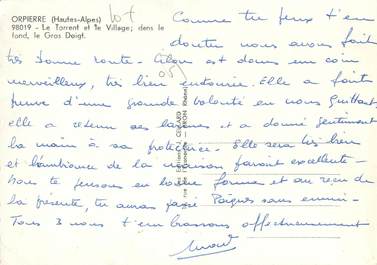 ORPIERRE (Hautes-Alpes)
98019 - Le Torrent et le Village; dans le
fond, le Gros Doigt.
Comme tu peux t'en
douter nous avons fait
très bonne route - est dans un coin
merveilleux, très bien entourée. Elle a fait
preuve d'une grande volonté en nous quittant,
elle a retenu ses larmes et a donné gentiment
la main à sa - Elle sera très bien
et l'ambiance de la maison parait excellente -
Nous te pensons en bonne forme et au reçu de
la présente, tu auras passé Pâques sans ennui -
Tous 3 nous t'embrassons affectueusement